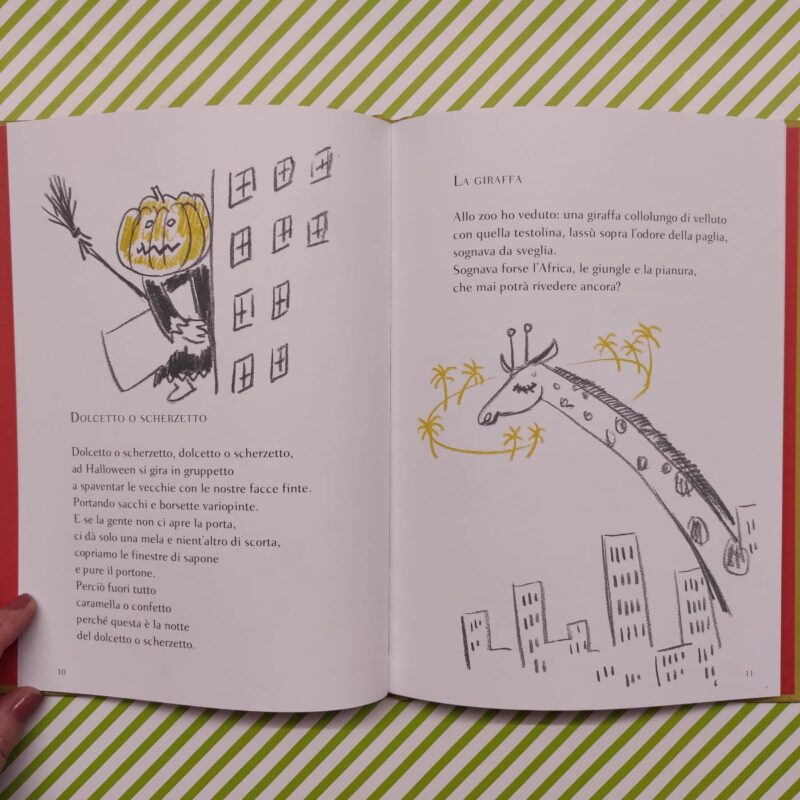 DOLCETTO O SCHERZETTO
Dolcetto o scherzetto, dolcetto o scherzetto,
ad Halloween si gira in gruppetto
a spaventar le vecchie con le nostre facce finte.
Portando sacchi e borsette variopinte.
E se la gente non ci apre la porta,
ci dà solo una mela e nient'altro di scorta,
copriamo le finestre di sapone
e pure il portone.
Perciò fuori tutto
caramella o confetto
perché questa è la notte
del dolcetto o scherzetto.
10
LA GIRAFFA
Allo zoo ho veduto: una giraffa collolungo di velluto
con quella testolina, lassù sopra l'odore della paglia,
sognava da sveglia.
Sognava forse l'Africa, le giungle e la pianura,
che mai potrà rivedere ancora?
11